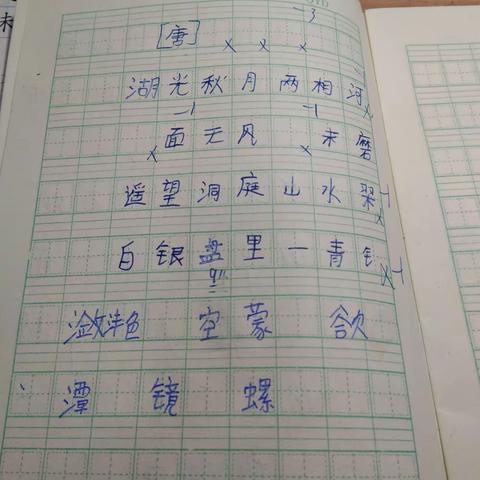 -3
[唐] × × ×
湖光秋月两相河×
-1 -1
×面无风 ×未磨
遥望洞庭山水翠 -1
×
白银盘里一青钅× -1
潋滟 空蒙 欲
潭 镜 螺